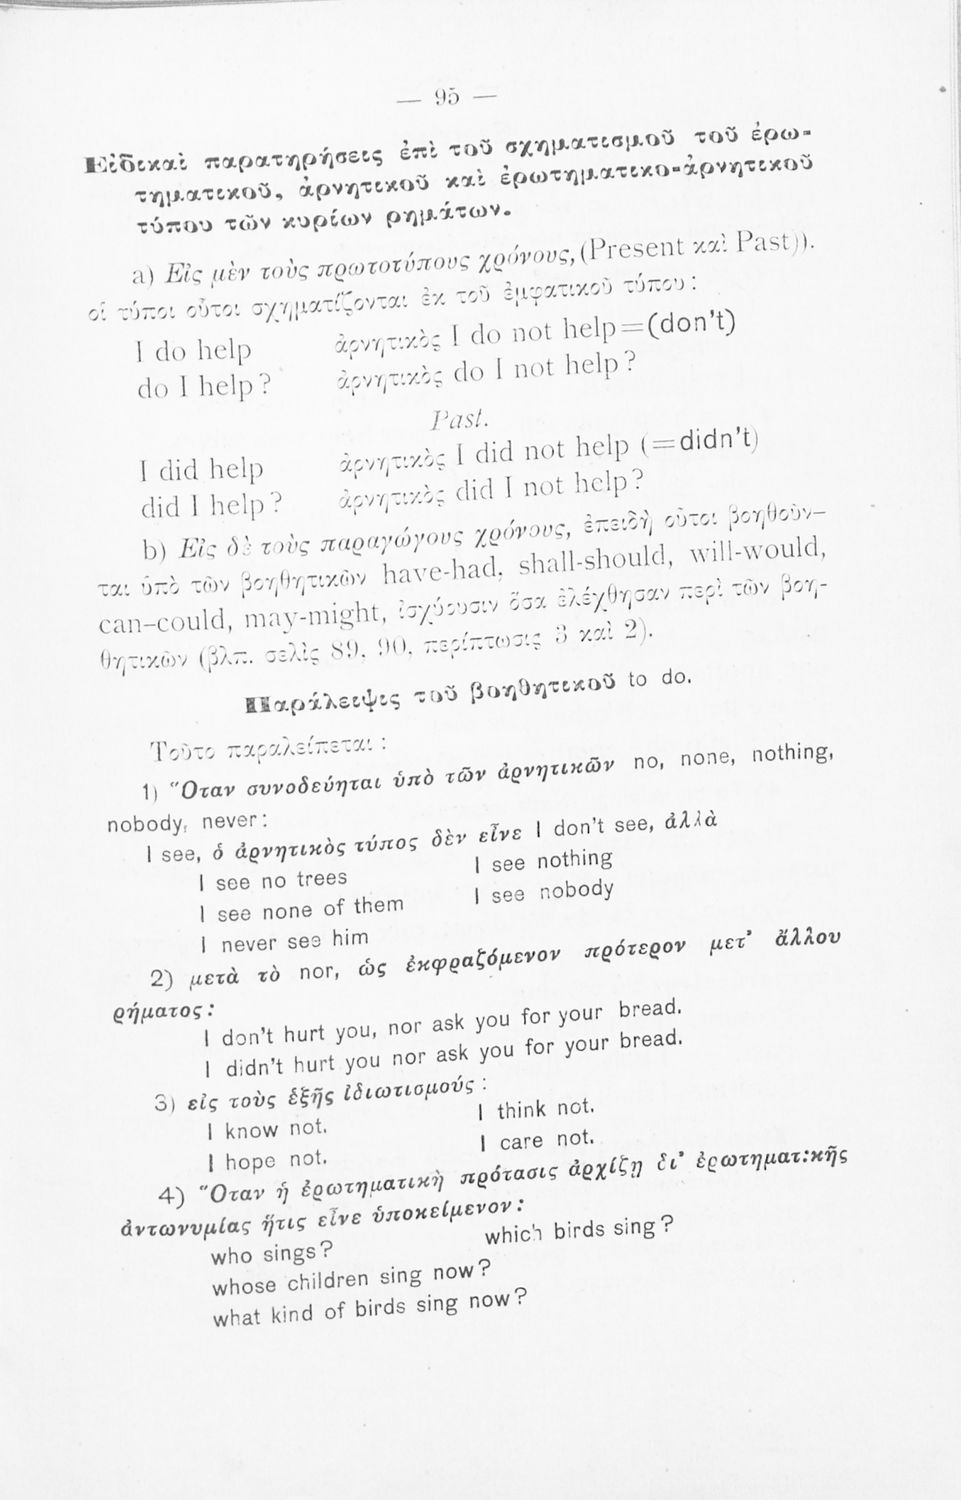 — 95 —
Εἰδικαὶ παρατηρήσεις ἐπὶ τοῦ σχηματισμοῦ τοῦ ἐρω-
τηματικοῦ, ἀρνητικοῦ καὶ ἐρωτηματικο-ἀρνητικοῦ
τύπου τῶν κυρίων ρημάτων.
a) Εἰς μὲν τοὺς πρωτοτύπους χρόνους, (Present καὶ Past)).
οἱ τύποι οὗτοι σχηματίζονται ἐκ τοῦ ἐμφατικοῦ τύπου :
I do help ἀρνητικὸς I do not help=(don't)
do I help? ἀρνητικὸς do I not help?
Past.
I did help ἀρνητικὸς I did not help (=didn't)
did I help? ἀρνητικὸς did I not help?
b) Εἰς δὲ τοὺς παραγώγους χρόνους, ἐπειδὴ οὗτοι βοηθοῦν-
ται ὑπὸ τῶν βοηθητικῶν have-had, shall-should, will-would,
can-could, may-might, ἰσχύουσιν ὅσα ἐλέχθησαν περὶ τῶν βοη-
θητικῶν (βλπ. σελὶς 89, 90, περίπτωσις 3 καὶ 2).
Παράλειψις τοῦ βοηθητικοῦ to do.
Τοῦτο παραλείπεται :
1) Ὅταν συνοδεύηται ὑπὸ τῶν ἀρνητικῶν no, none, nothing,
nobody, never:
I see, ὁ ἀρνητικὸς τύπος δὲν εἶνε I don't see, ἀλλὰ
I see no trees I see nothing
I see none of them I see nobody
I never see him
2) μετὰ τὸ nor, ὡς ἐκφραζόμενον πρότερον μετ' ἄλλου
ρήματος :
I don't hurt you, nor ask you for your bread.
I didn't hurt you nor ask you for your bread.
3) εἰς τοὺς ἑξῆς ἰδιωτισμούς :
I know not. I think not.
I hope not. I care not.
4) Ὅταν ἡ ἐρωτηματικὴ πρότασις ἀρχίζῃ δι' ἐρωτηματικῆς
ἀντωνυμίας ἥτις εἶνε ὑποκείμενον :
who sings? which birds sing?
whose children sing now?
what kind of birds sing now?